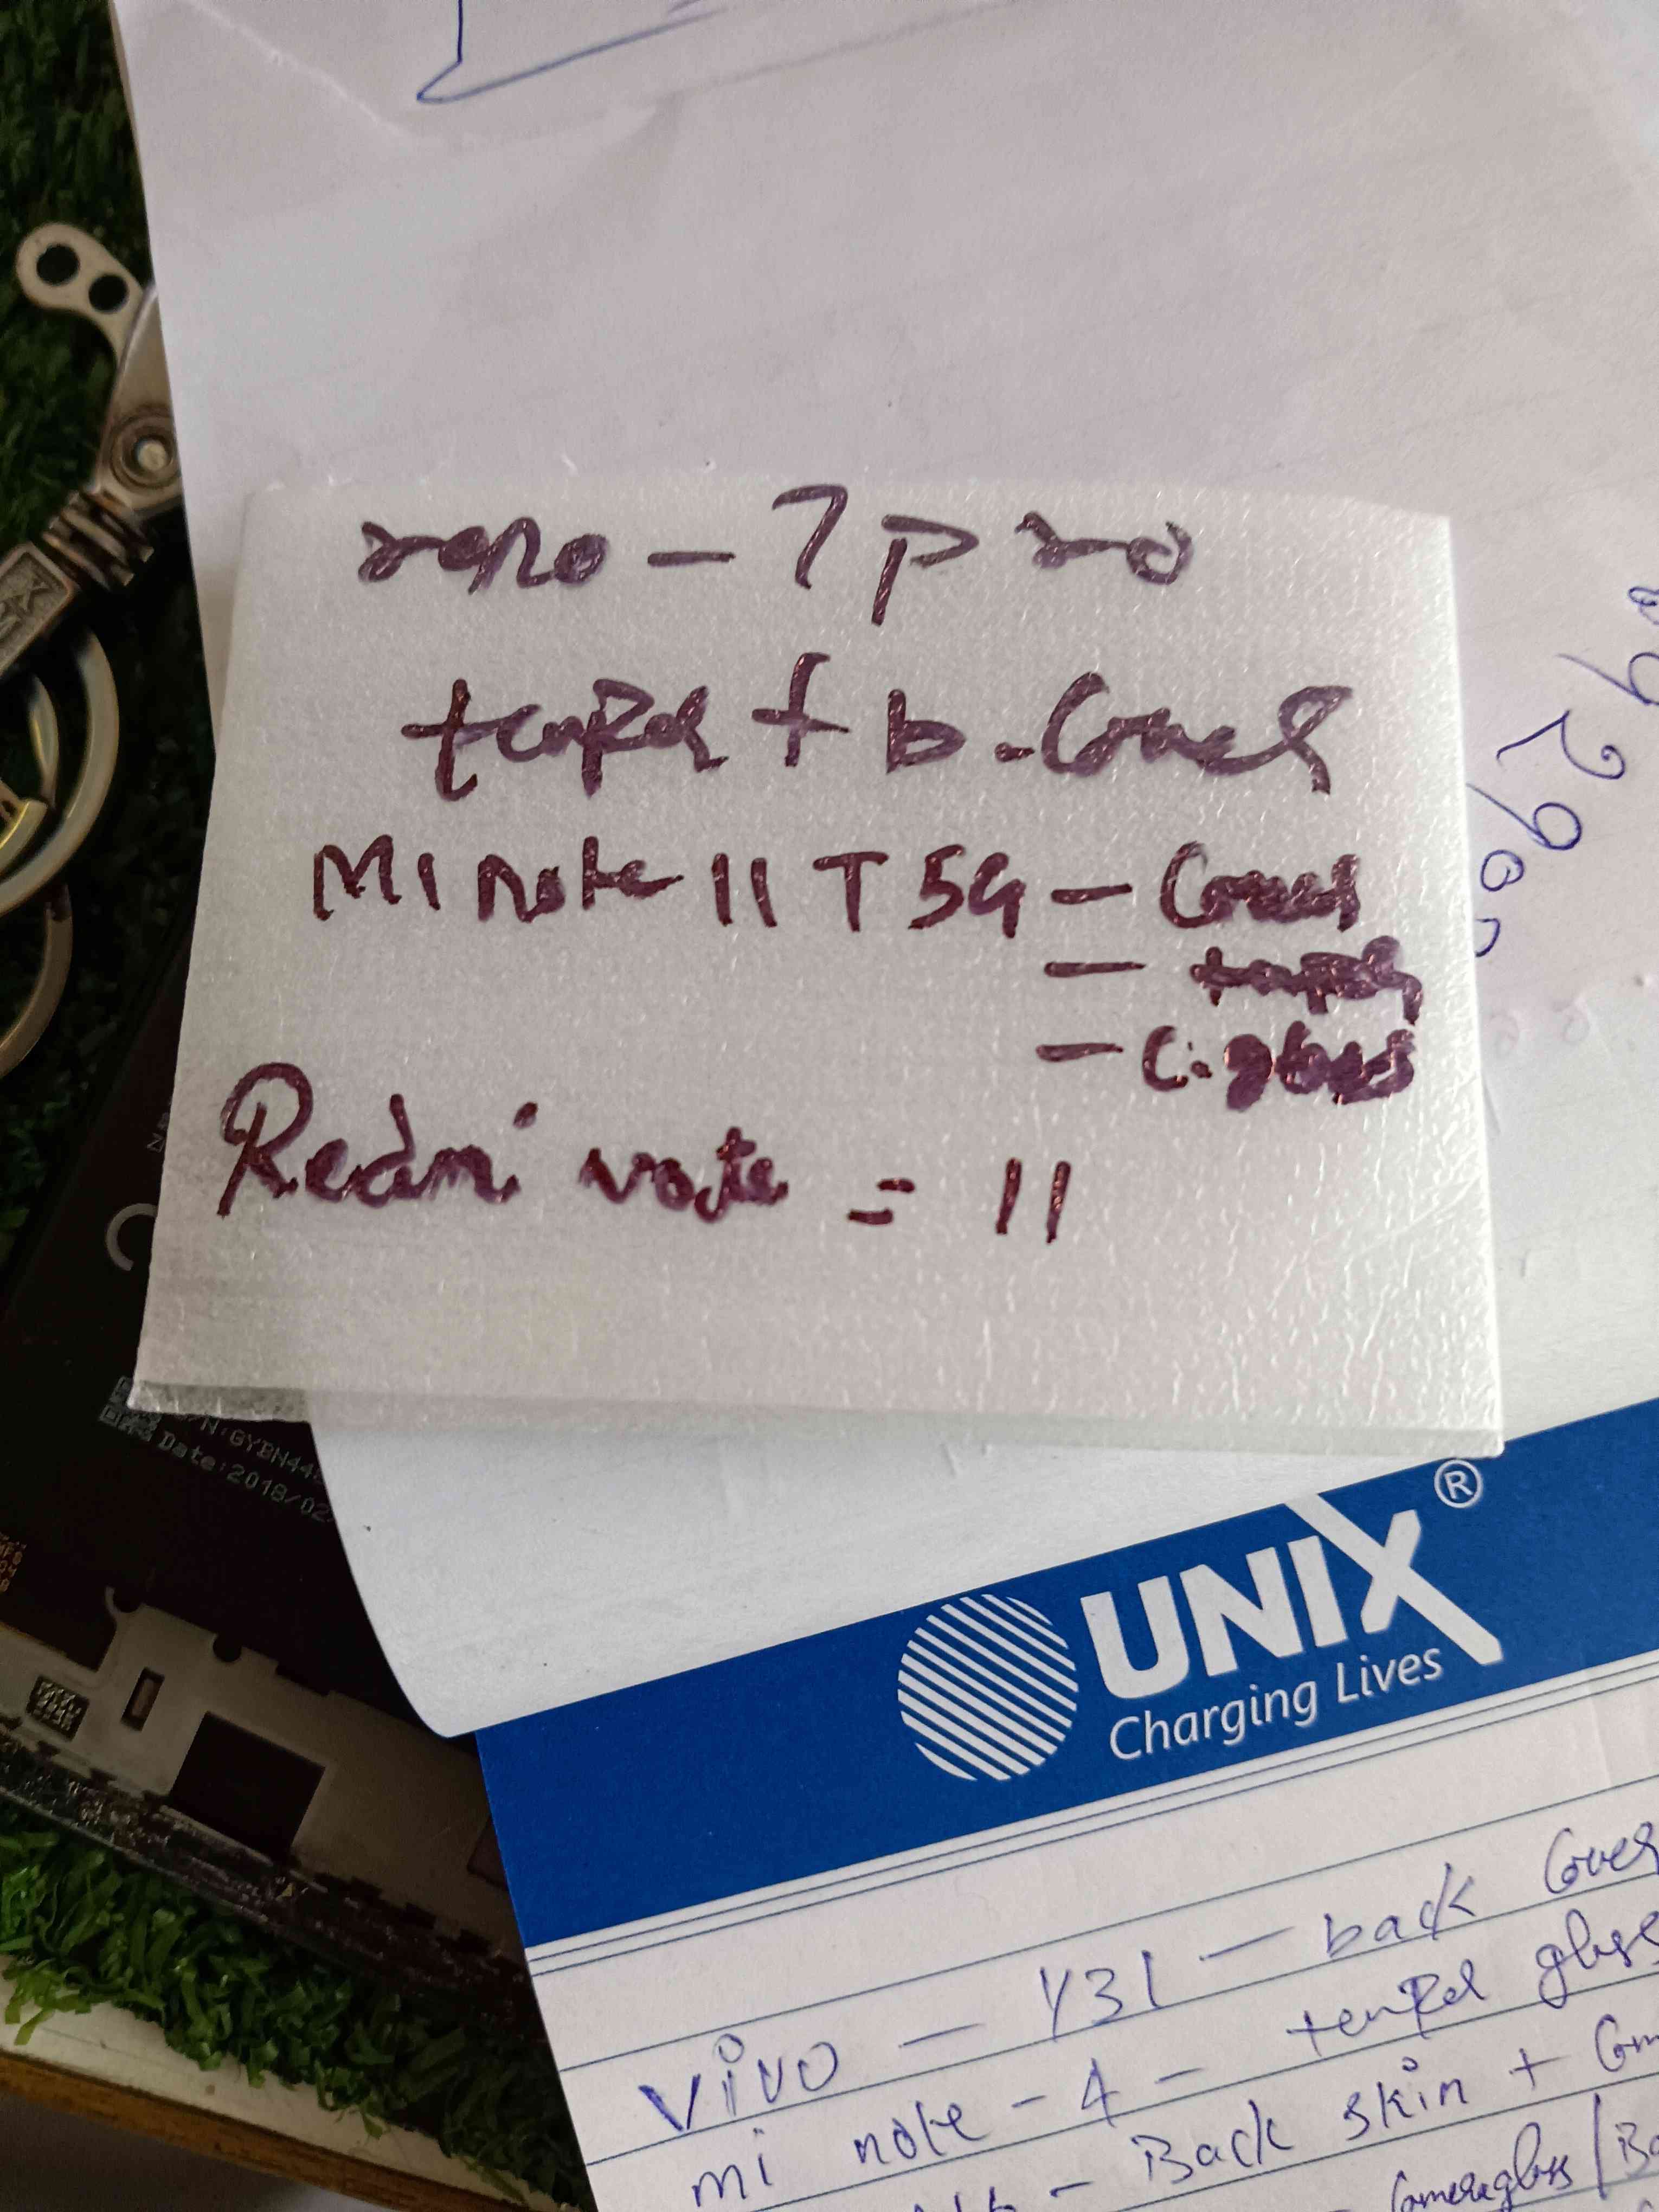 reno - 7 pro
tenper + b. Cover
MI note 11 T 5G - Cover
- temper
- C. glass
Redmi note = 11
2900
N:GYBN44
Date:2018/02
UNIX®
Charging Lives
Vivo - Y31 - back Cover
mi note - 4 - temper glass
- Back skin + Cam
Camera glass / Ba